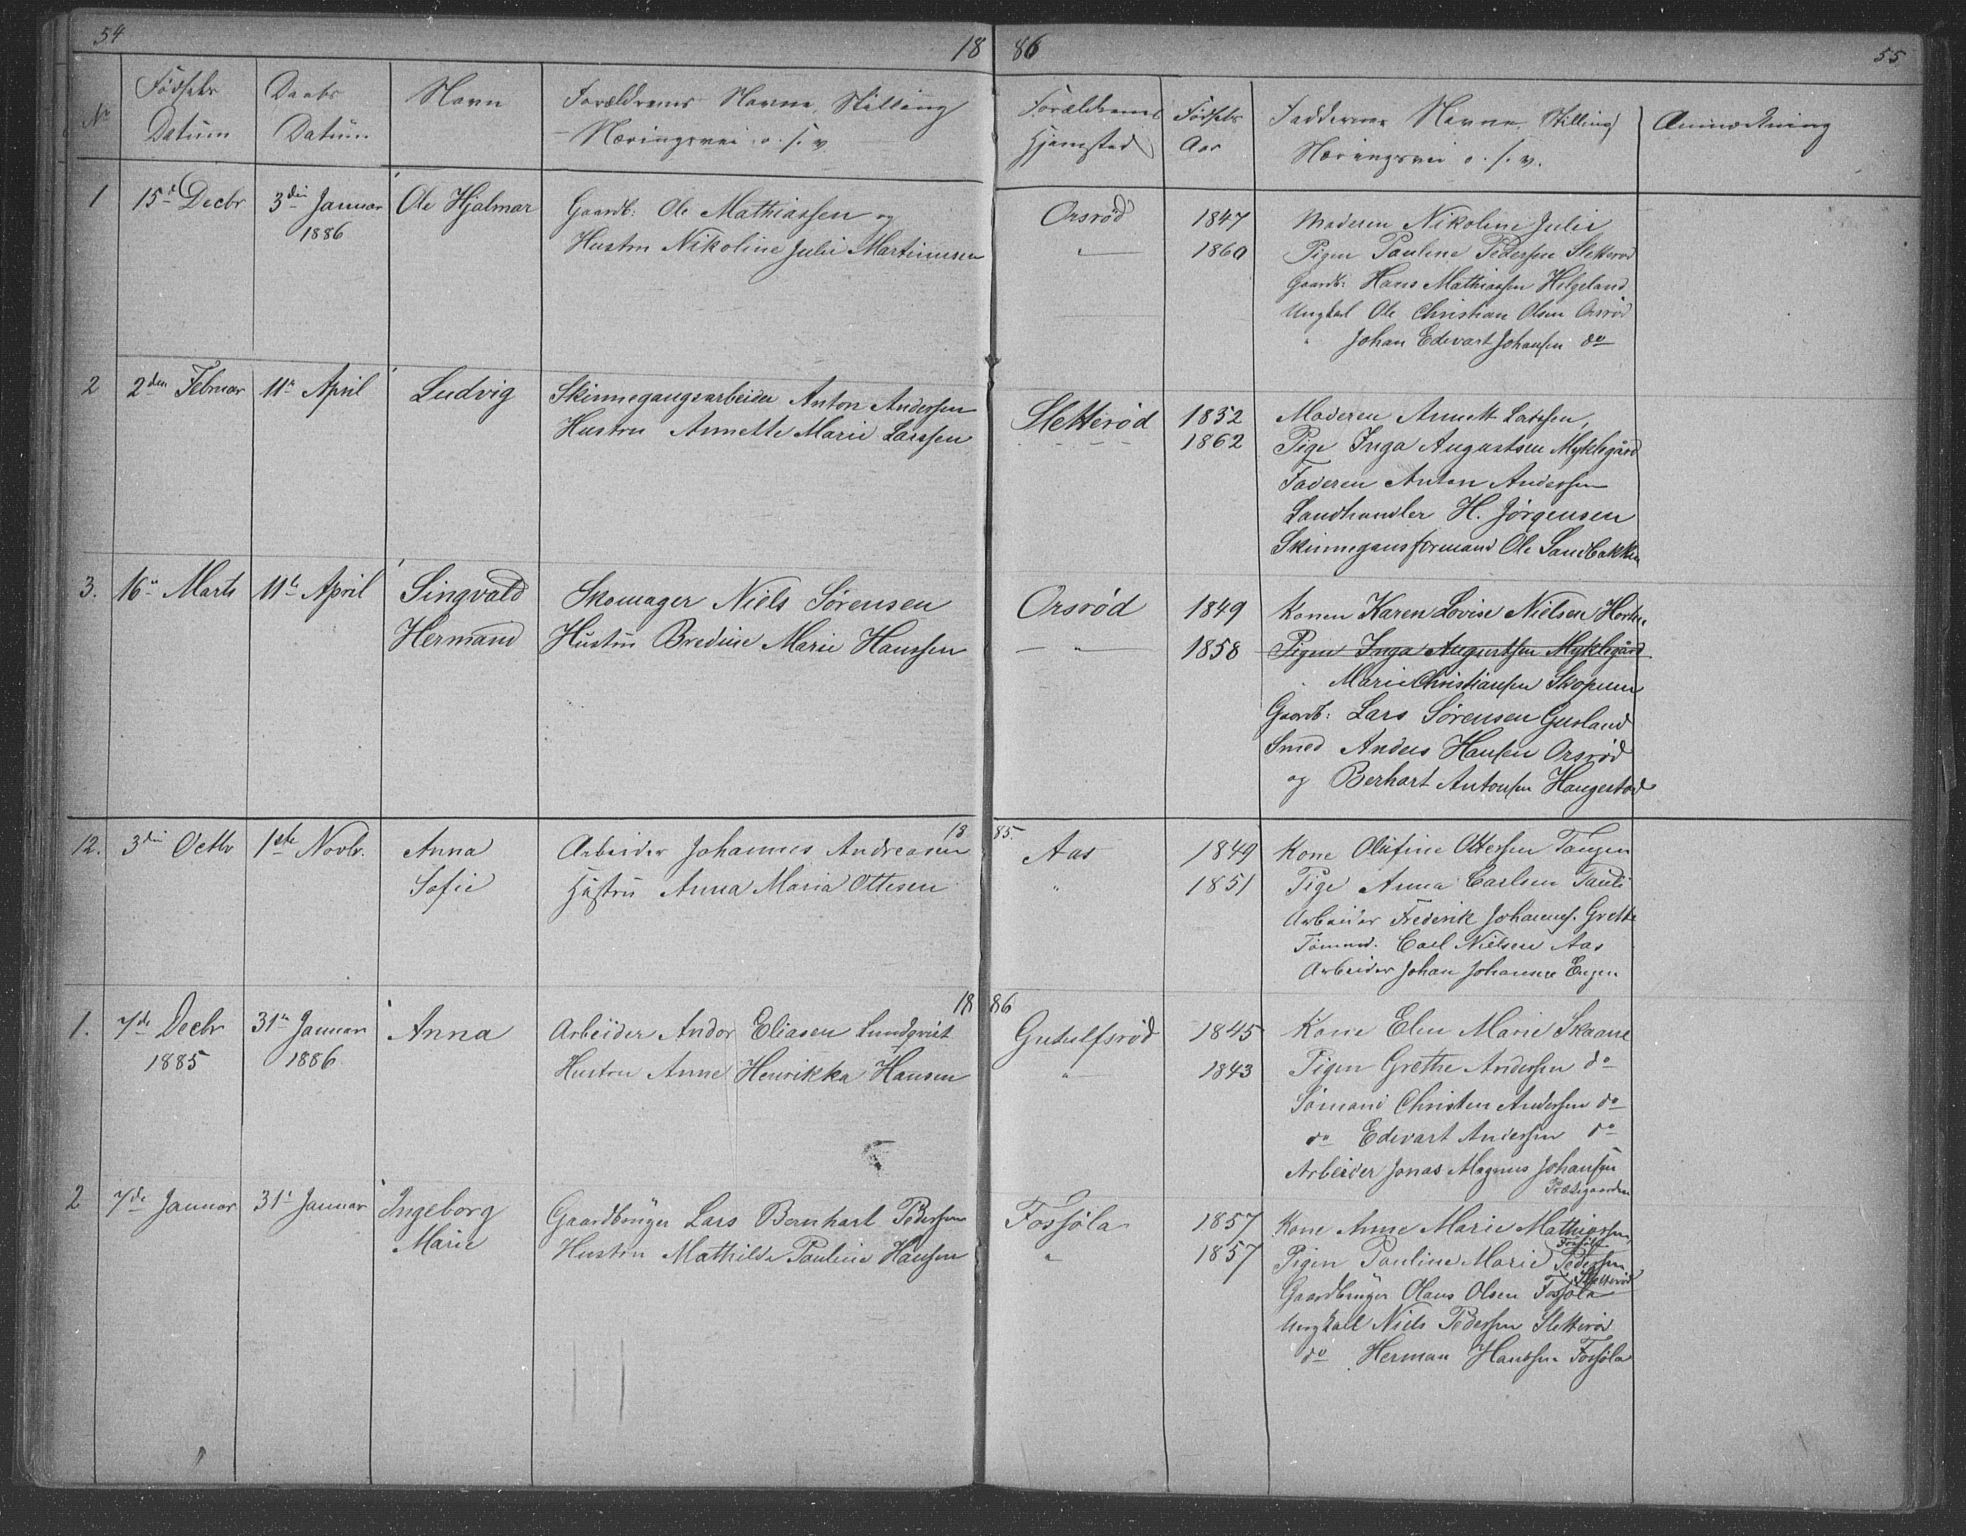 54
18 86
55
No
Fødsels Datum
Daabs Datum
Navn
Forældrenes Navne, Stilling
Næringsvei o. s. v.
Forældrenes Hjemsted
Fødsels Aar
Faddernes Navne, Stilling
Næringsvei o. s. v.
Anmærkning
1
15d Decbr
3die Januar
1886
Ole Hjalmar
Gaardb: Ole Mathiassen og
Hustru Nikoline Julie Martinusen
Orsrød
"
1847
1860
Moderen Nikoline Julie
Pigen Pauline Pedersen Sletterød
Gaardb: Hans Mathiassen Helgeland
Ungkal Ole Christian Olsen Orsrød
" Johan Edevart Johansen do
2
2den Februar
11te April
Ludvig
Skinnegangsarbeider Anton Andersen
Hustru Annette Marie Larssen
Sletterød
1832
1862
Moderen Annett Larssen
Pige Inga Augustsen Myklegård
Faderen Anton Andersen
Landhandler H. Jørgensen
Skinnegansformand Ole Sandbakken
3.
16de Marts
11te April
Singvald
Hermand
Skomager Niels Sørensen
Hustru Bredine Marie Hanssen
Orsrød
"
1849
1858
Konen Karen Lovise Nielsen
Pigen Inga Augustsen Myklegård
" Marie Christiansen Skopum
Gaardb: Lars Sørensen Gusland
Smed Anders Hansen Orsrød
og Berhart Antonsen Haugestad
18 85.
12.
3die Octbr
1ste Novbr.
Anna
Sofie
Arbeider Johannes Andreasen
Hustru Anna Maria Ottesen
Aas
"
1849
1851
Kone Olufine Ottersen Tangen
Pige Anna Carlsen
Arbeider Frederik Johannes. Grette
Tømmed. Carl Nielsen Aas
Arbeider Johan Johansen Engen
18 86
1.
7de Decbr
1885
31te Januar
1886
Anna
Arbeider Andor Eliasen Lundqvist
Hustru Anne Henrikka Hansen
Gutulfsrød
"
1845
1843
Kone Elen Marie Skaane
Pigen Grethe Andersen do
Sømand Christen Andersen do
do Edevart Andersen do
Arbeider Jonas Magnus Johansen
Præstegaarden
2
7de Januar
31te Januar
Ingeborg
Marie
Gaardbruger Lars Bernhart Pedersen
Hustru Mathilde Pauline Hansen
Fossøla
"
1857
1857
Kone Anne Marie Mathiassen
Fossøla
Pigen Pauline Marie Pedersen
Sletterød
Gaardbruger Olaus Olsen Fossøla
Ungkall Niels Pedersen Sletterød
do Herman Hanssen Fossøla